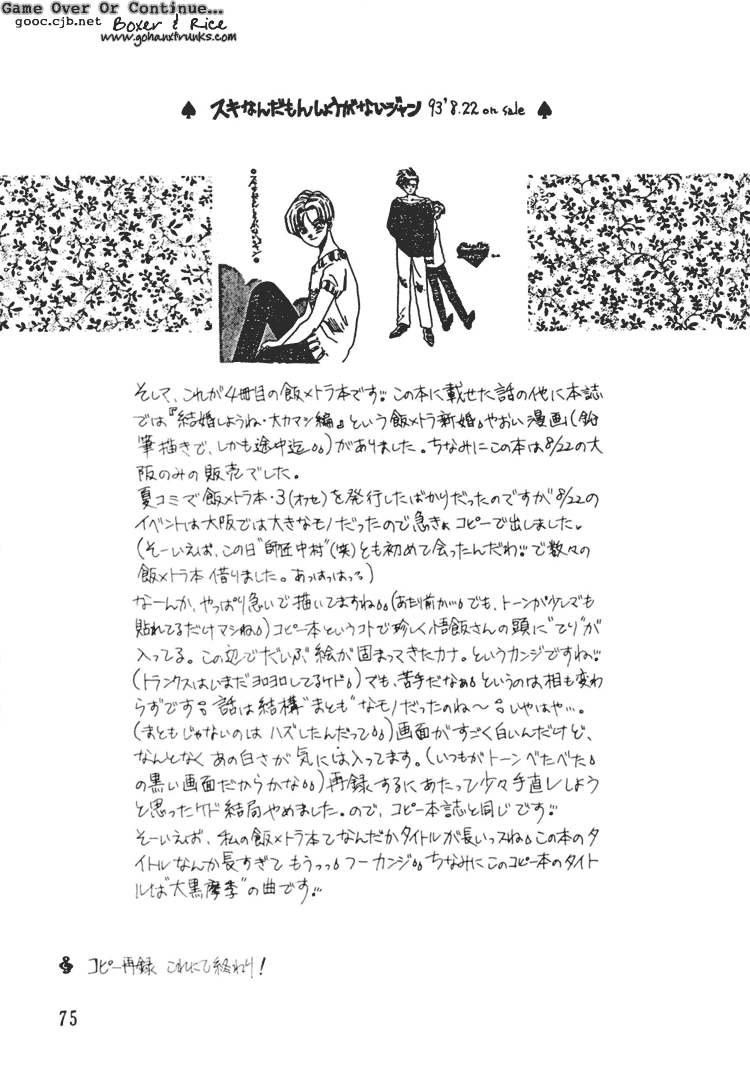 Game Over Or Continue...
gooc.cjb.net Boxer & Rice
www.gohanxtrunks.com
♠ スキなんだもんしょうがないジャン 93'8.22 on sale ♠
そして、これが4冊目の飯×トラ本です!! この本に載せた話の他に本誌
では『結婚しようね・大カマシ編』という飯×トラ新婚。やおい漫画(鉛
筆描きで、しかも途中迄。。)がありました。ちなみにこの本は8/22の大
阪のみの販売でした。
夏コミで飯×トラ本・3(オフセ)を発行したばかりだったのですが8/22の
イベントは大阪では大きなモノだったので急きょコピーで出しました。
(そーいえば、この日"師匠中村"(笑)とも初めて会ったんだわ!! で数々の
飯×トラ本 借りました。あっはっはっ)
なーんか、やっぱり急いで描いてますね。。(あたり前か…。でも、トーンが少しでも
貼れてるだけマシね。)コピー本というコトで珍しく悟飯さんの頭に"てり"が
入ってる。この辺でだいぶ絵が固まってきたカナ。というカンジですね!!
(トランクスはいまだヨロヨロしてるケド。)でも、苦手だなぁ。というのは相も変わ
らずです。話は結構"まとも"なモノだったのね〜。いやはや…。
(まともじゃないのは ハズしたんだって。。)画面がすごく白いんだけど、
なんとなく あの白さが 気に入ってます。(いつもがトーンべたべた。
の黒い画面だからかな。。)再録するにあたって少々手直ししよう
と思ったケド 結局やめました。ので、コピー本誌と同じです!!
そーいえば、私の飯×トラ本てなんだかタイトルが長いっスね。この本のタ
イトルなんか長すぎて もうっっ。フーカンジ。。ちなみにこのコピー本のタイト
ルは"大黒摩季"の曲です!!
コピー再録 これにて終わり!
75